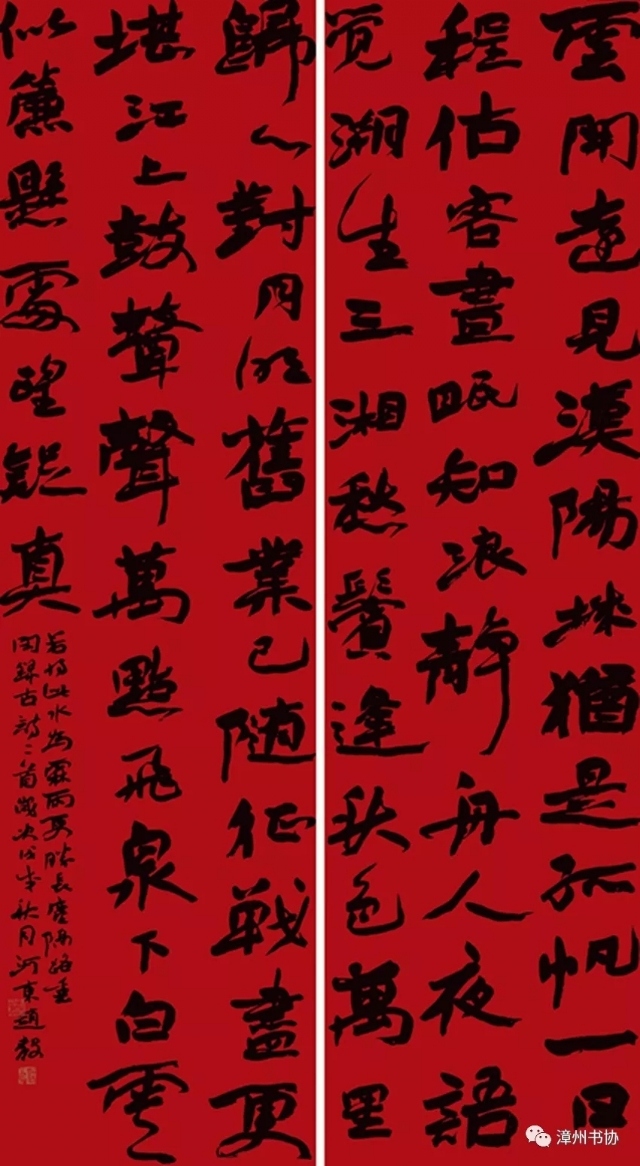 雲開遠見漢陽城猶是孤帆一日
程估客晝眠知浪靜舟人夜語
觉潮生三湘愁鬢逢秋色萬里
歸心對月明舊業已随征戰盡更
堪江上鼓鼙聲萬點飛泉下白雲
似簾懸處望疑真
若將此水為霖雨更勝長垂隔路塵
閑録古詩二首歲次戊年秋月河東趙毅
漳州书协